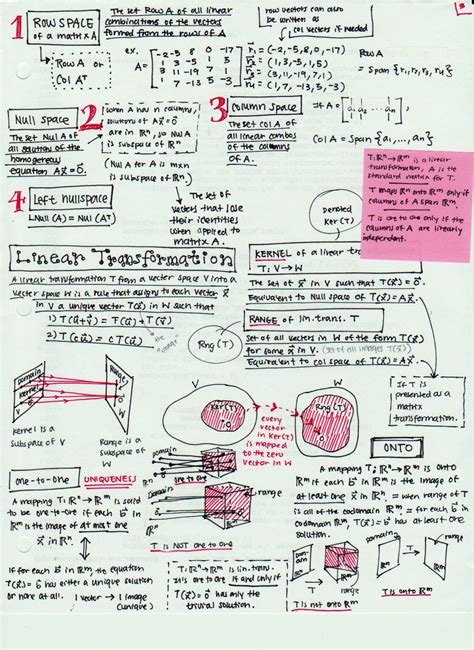 1 ROW SPACE
of a matrix A
The set Row A of all linear
combinations of the vectors
formed from the rows of A
row vectors can also
be written as
col vectors if needed
3
→ Row A or
Col Aᵀ
ex.
A = [-2 -5 8 0 -17
1 3 -5 1 5
3 11 -19 7 1
1 7 -13 5 -3]
r⃗₁ = (-2,-5,8,0,-17)
r⃗₂ = (1,3,-5,1,5)
r⃗₃ = (3,11,-19,7,1)
r⃗₄ = (1,7,-13,5,-3)
Row A
= Span {r₁, r₂, r₃, r₄}
Null space 2
The set Nul A of
all solution of the
homogeneous
equation Ax⃗ = 0⃗
When A has n columns,
solutions of Ax⃗ = 0⃗
are in ℝⁿ, so Nul A
is subspace of ℝⁿ.
(Nul A for A is mxn
is subspace of ℝⁿ.)
3 Column Space
The set Col A of
all linear combos
of the columns
of A.
If A = [a₁ a₂ ... aₙ]
Col A = Span {a₁,...,aₙ}
T: ℝⁿ→ℝᵐ is a linear
transformation, A is the
standard matrix for T.
T maps ℝⁿ onto ℝᵐ only if
columns of A span ℝᵐ.
T is one to one only if the
columns of A are linearly
independent.
4 Left nullspace
LNul (A) = Nul (Aᵀ)
The set of
vectors that lose
their identities
when applied to
matrix A.
Denoted
Ker (T)
Linear Transformation
A linear transformation T from a vector space V into a
vector space W is a rule that assign to each vector x⃗
in V a unique vector T(x⃗) in W such that
1) T(u⃗+v⃗) = T(u⃗) + T(v⃗)
2) T(cu⃗) = cT(u⃗)
the
"image"
KERNEL of a linear
T: V→W
The set of x⃗ in V such that T(x⃗) = 0⃗
Equivalent to Null space of T(x⃗) = Ax⃗.
Rng (T)
RANGE of lin. trans. T
Set of all vectors in W of the form T(x⃗)
for some x⃗ in V. (set of all images T(x⃗))
Equivalent to col space of T(x⃗) = Ax⃗.
If T is
presented as a
matrix
transformation.
Domain
Kernel
Range
0
0
V
W
Kernel is a
subspace of V
Range is a
subspace of W
V
W
Ker(T)
0
Rng(T)
0
every
vector in
Ker(T)
is mapped
to the zero
vector in W
one-to-one UNIQUENESS
A mapping T: ℝⁿ→ℝᵐ is said
to be one-to-one if each b⃗ in
ℝᵐ is the image of at most one
x⃗ in ℝⁿ.
If for each b⃗ in ℝᵐ, the equation
T(x⃗) = b⃗ has either a unique solution
or none at all.
1 vector → 1 image
(unique)
Domain
one to one
range
T is NOT one to one
T: ℝⁿ→ℝᵐ is lin. trans.
It's one to one if and only if
T(x⃗) = 0⃗ has only the
trivial solution.
ONTO
A mapping T: ℝⁿ→ℝᵐ is onto
ℝᵐ if each b⃗ in ℝᵐ is the image of
at least one x⃗ in ℝⁿ. = when range of T
is all of the codomain ℝᵐ = for each b⃗ in
codomain ℝᵐ, T(x⃗) = b⃗ has at least one
solution.
domain
range
T
ℝⁿ
ℝᵐ
T is not onto ℝᵐ
domain
range
T
ℝⁿ
ℝᵐ
T is onto ℝᵐ